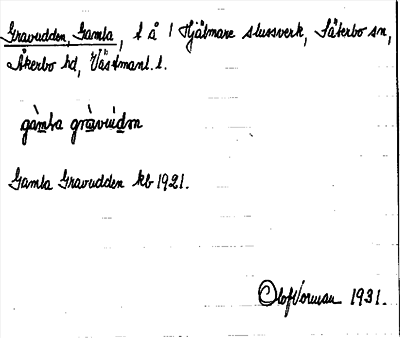 Gravudden, Gamla, t å 1 Hjälmare slussverk, Säterbo sn,
Åkerbo hd, Västmanl. l.
gàmla gràvúdən
Gamla Gravudden kb 1921.
Olof Vorman 1931.